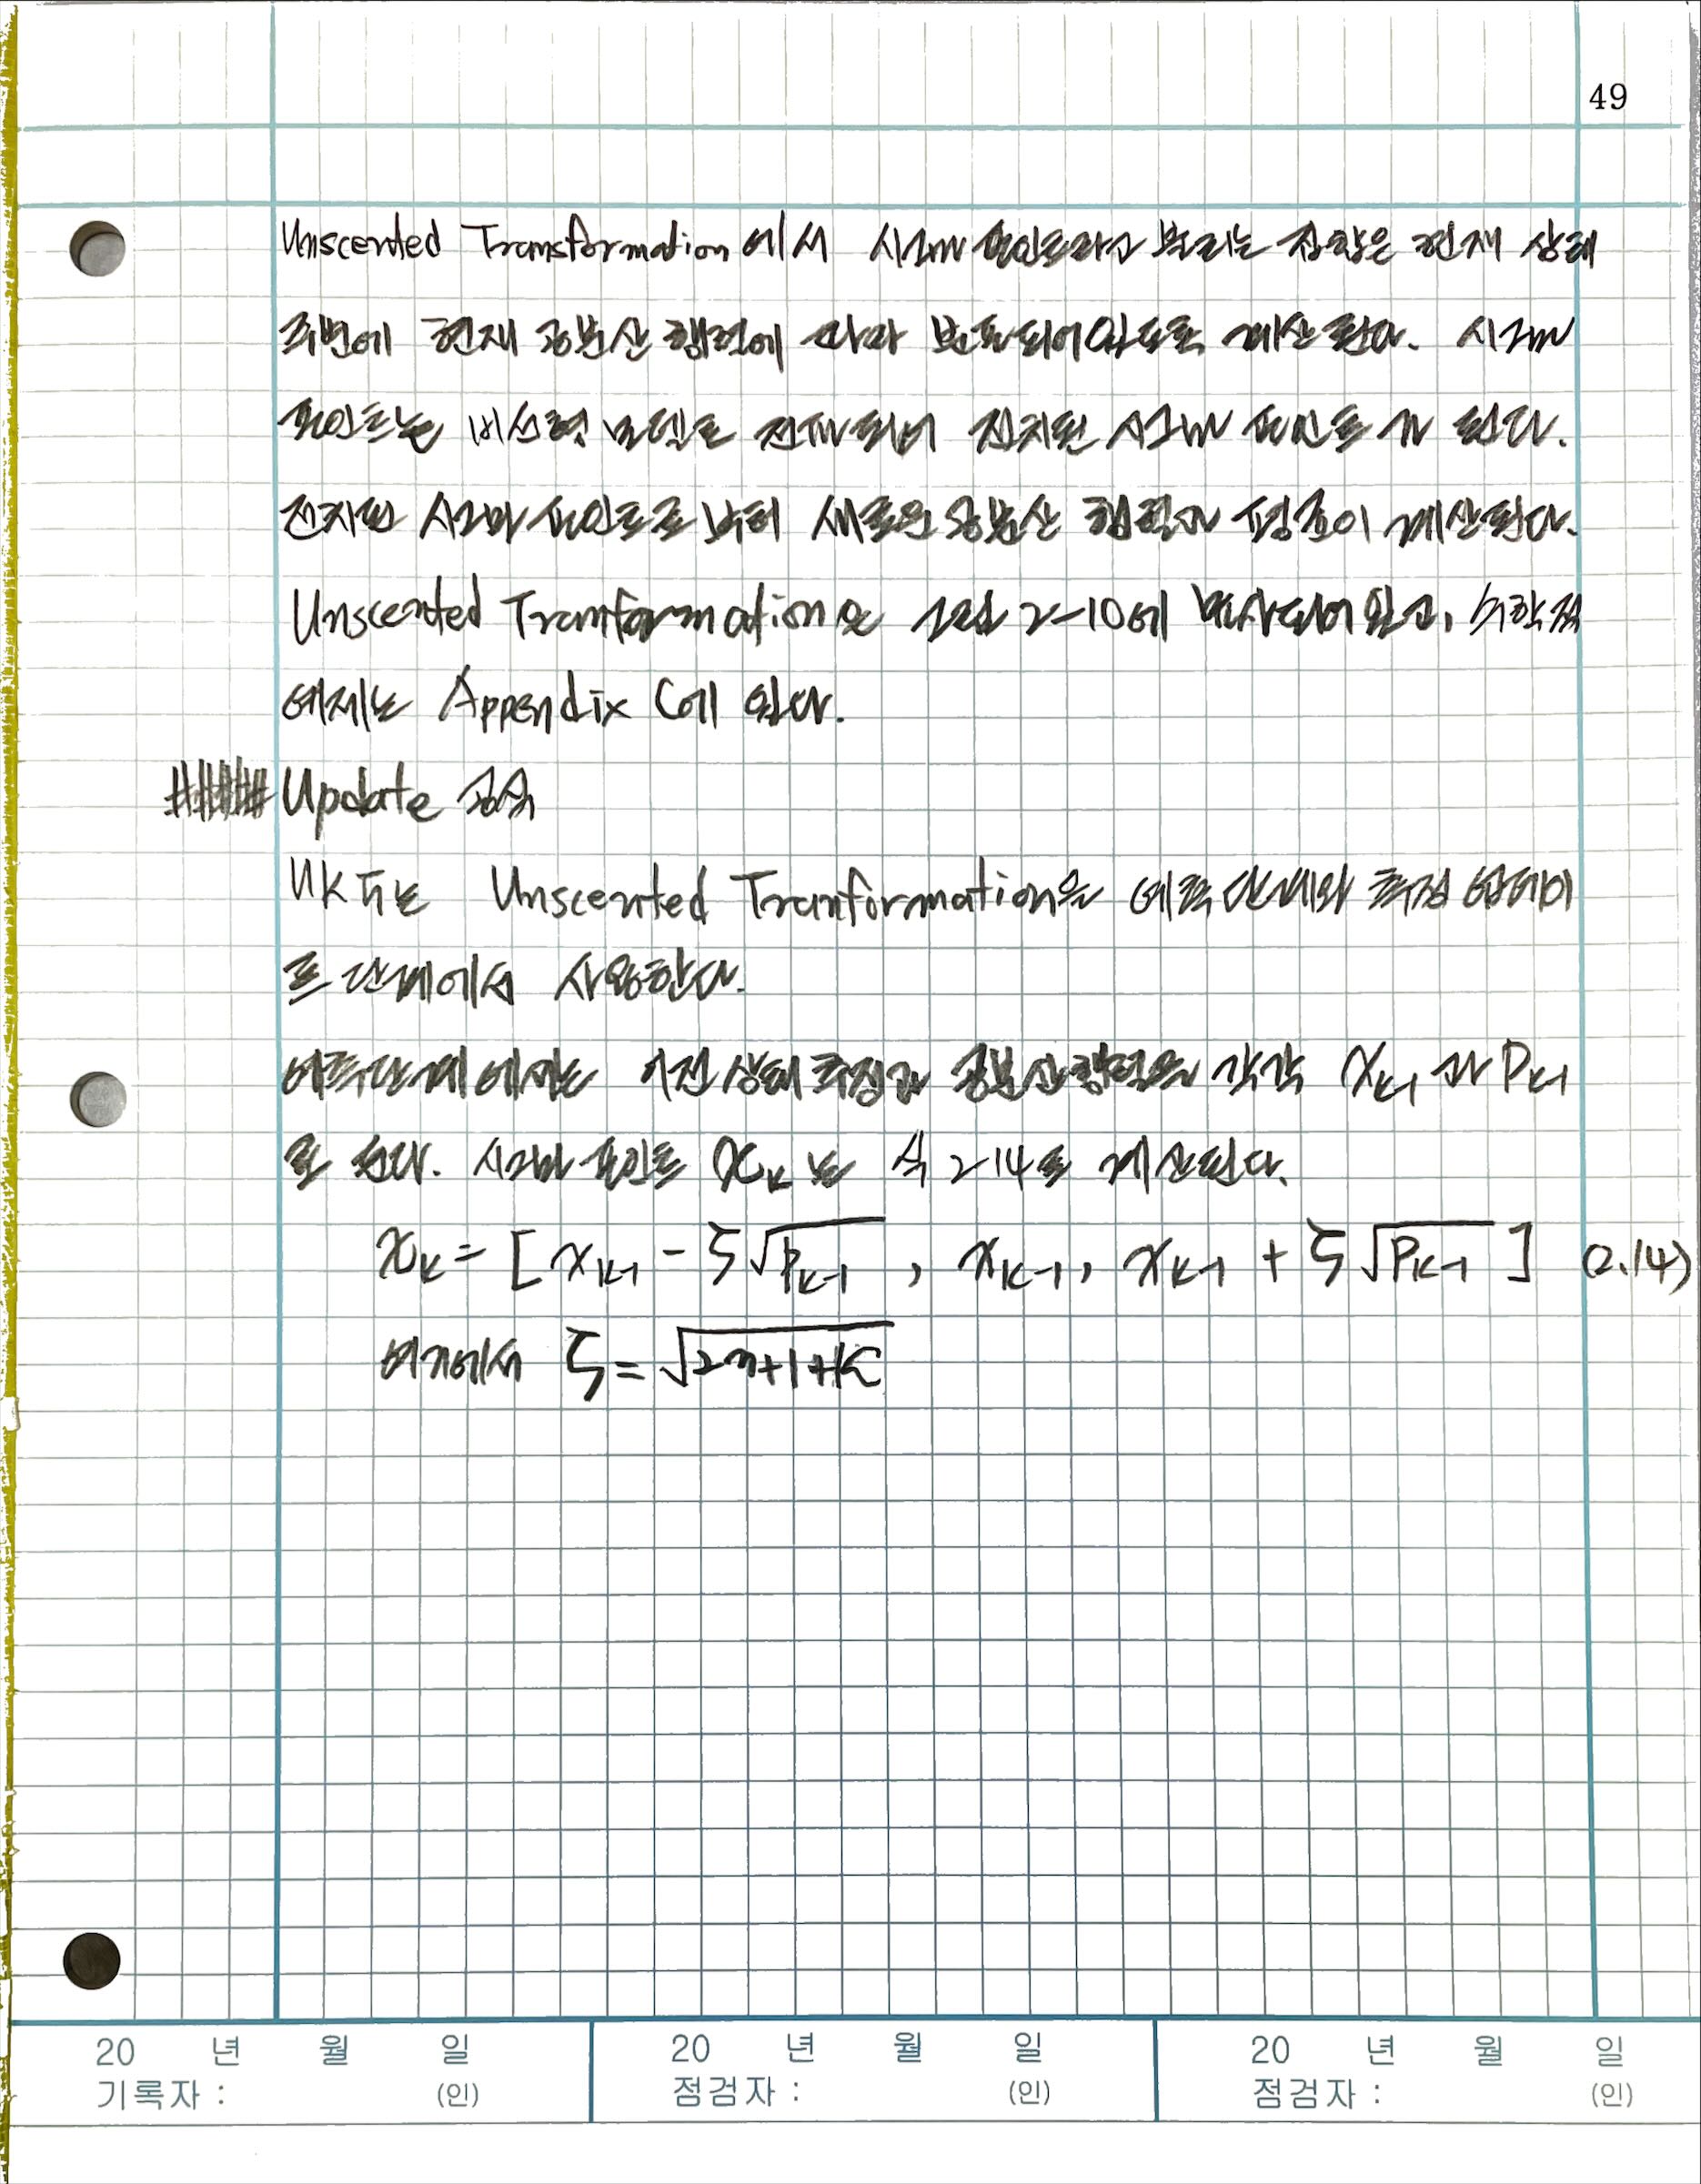 49
Unscented Transformation에서 시그마 포인트라고 불리는 집합은 현재 상태
주변에 현재 공분산 행렬에 따라 분포되어있도록 계산된다. 시그마
포인트는 비선형 모델로 전파되어 전치된 시그마 포인트가 된다.
전치된 시그마 포인트로부터 새로운 공분산 행렬과 평균이 계산된다.
Unscented Tranformation은 그림 2-10에 묘사되어 있고, 수학적
예제는 Appendix C에 있다.
#### Update 공식
UKF는 Unscented Tranformation을 예측 단계와 측정 업데이
트 단계에서 사용한다.
예측단계에서는 이전 상태 추정과 공분산행렬을 각각 x_{k-1}과 P_{k-1}
로 쓴다. 시그마 포인트 χ_k는 식 2.14로 계산된다.
χ_k = [ x_{k-1} - ζ√P_{k-1} , x_{k-1}, x_{k-1} + ζ√P_{k-1} ] (2.14)
여기에서 ζ = √2n+1+κ
20 년 월 일 20 년 월 일 20 년 월 일
기록자 : (인) 점검자 : (인) 점검자 : (인)